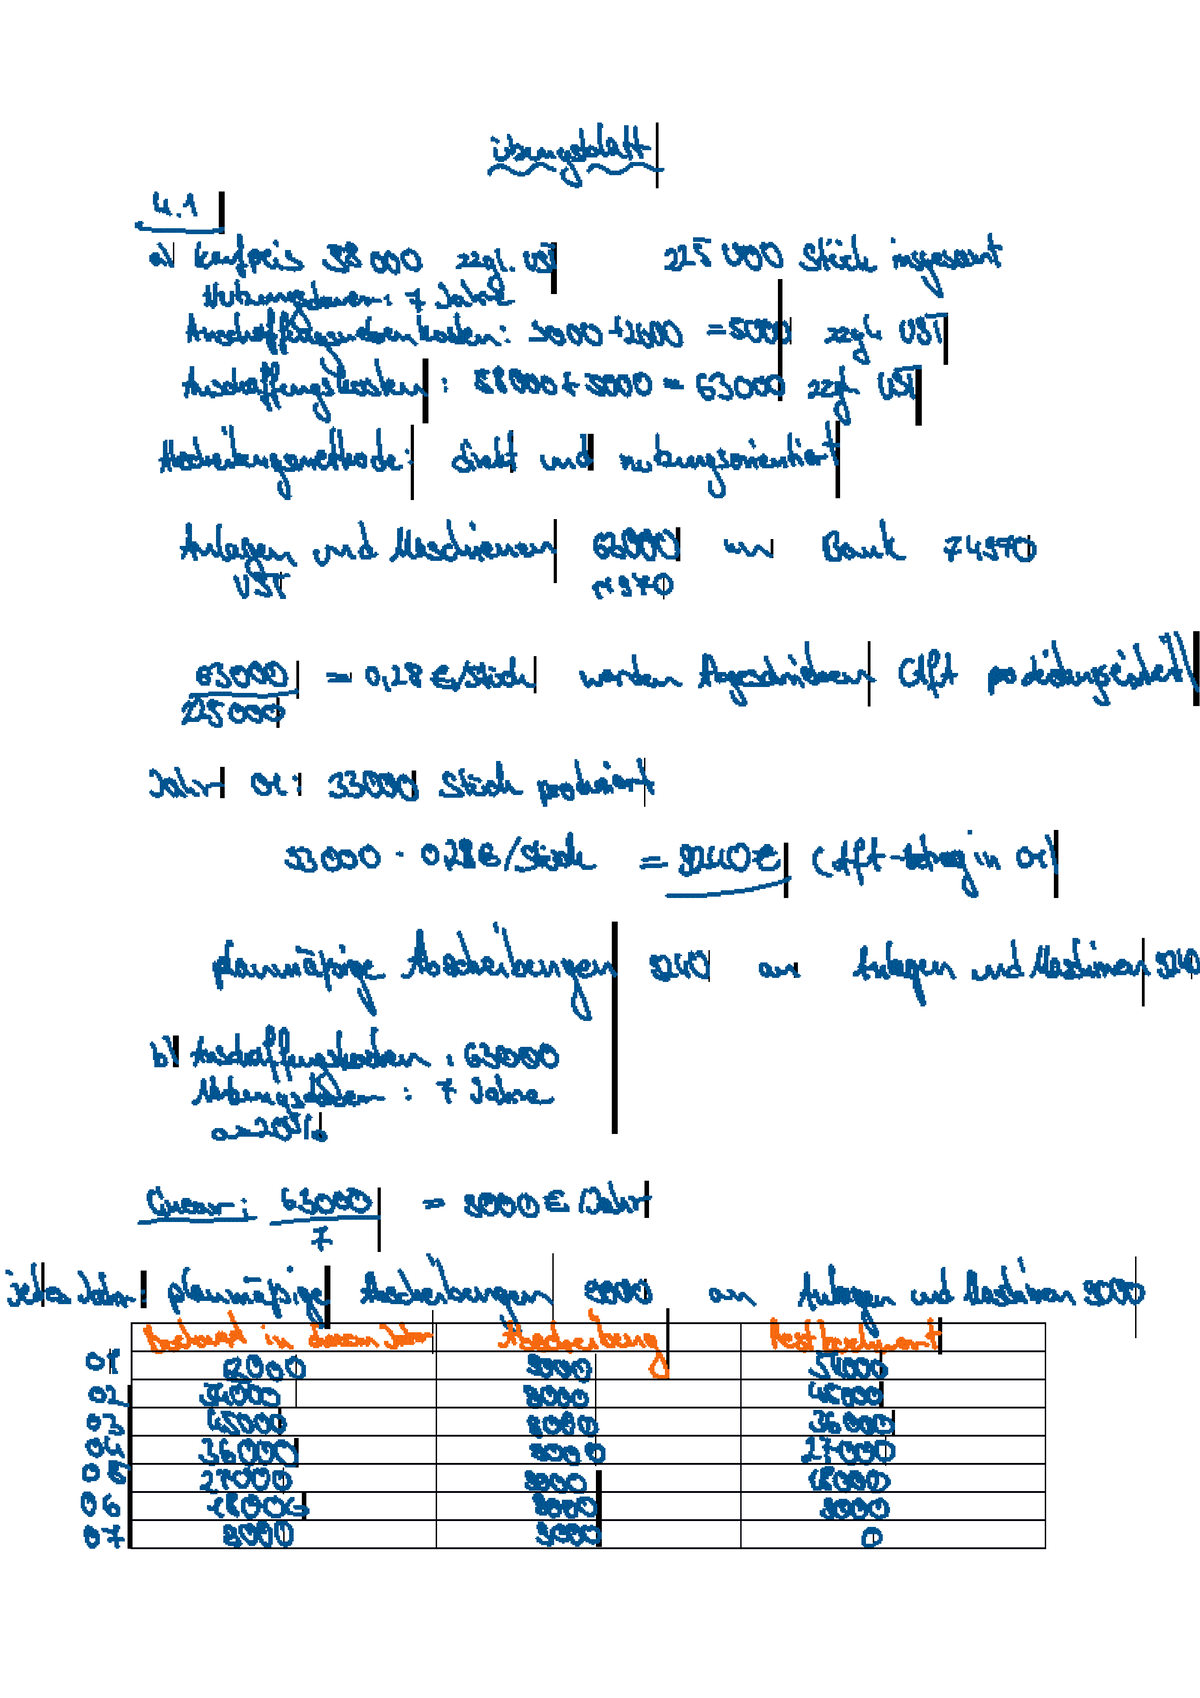 Übungsblatt
4.1
a) Kaufpreis 58 000 zzgl. VST 225 000 Stück insgesamt
Nutzungsdauer: 7 Jahre
Anschaffungsnebenkosten: 3000 + 2000 = 5000 zzgl. VST
Anschaffungskosten: 58000 + 5000 = 63000 zzgl. VST
Abschreibungsmethode: direkt und nutzungsorientiert
Anlagen und Maschinen 63000 an Bank 74970
VST 11970
63000 = 0,28 €/Stück werden Abgeschrieben
225000
Jahr 01: 33000 Stück produziert
33000 · 0,28€/Stück = 9240€ (AfA-Betrag in 01)
planmäßige Abschreibungen 9240 an Anlagen und Maschinen 9240
b) Anschaffungskosten: 63000
Nutzungsdauer: 7 Jahre
Linear: 63000 = 9000€/Jahr
7
jedes Jahr: planmäßige Abschreibungen 9000 an Anlagen und Maschinen 9000
Buchwert in diesem Jahr Abschreibung Restbuchwert
01 63000 9000 54000
02 54000 9000 45000
03 45000 9000 36000
04 36000 9000 27000
05 27000 9000 18000
06 18000 9000 9000
07 9000 9000 0